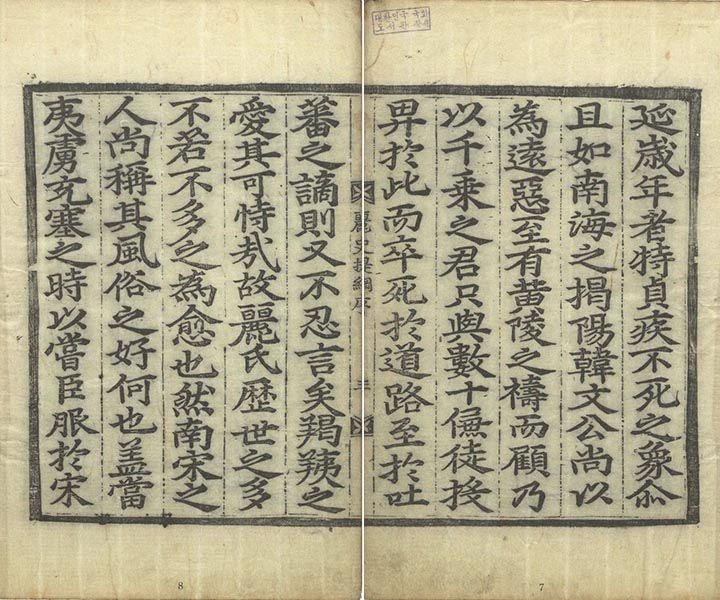 대한민국 국회
도서관
延歳年者特貞疾不死之象尒
且如南海之揭陽韓文公尚以
為遠惡至有黄陵之禱而顧乃
以千乗之君只與數十傔徒投
畀於此而卒死於道路至於吐
麗史提綱序 三
蕃之謫則又不忍言矣羯羠之
愛其可恃㢤故麗氏歷世之多
不若不多之為愈也然南宋之
人尚稱其風俗之好何也盖當
夷虜充塞之時以嘗臣服於宋
7
8